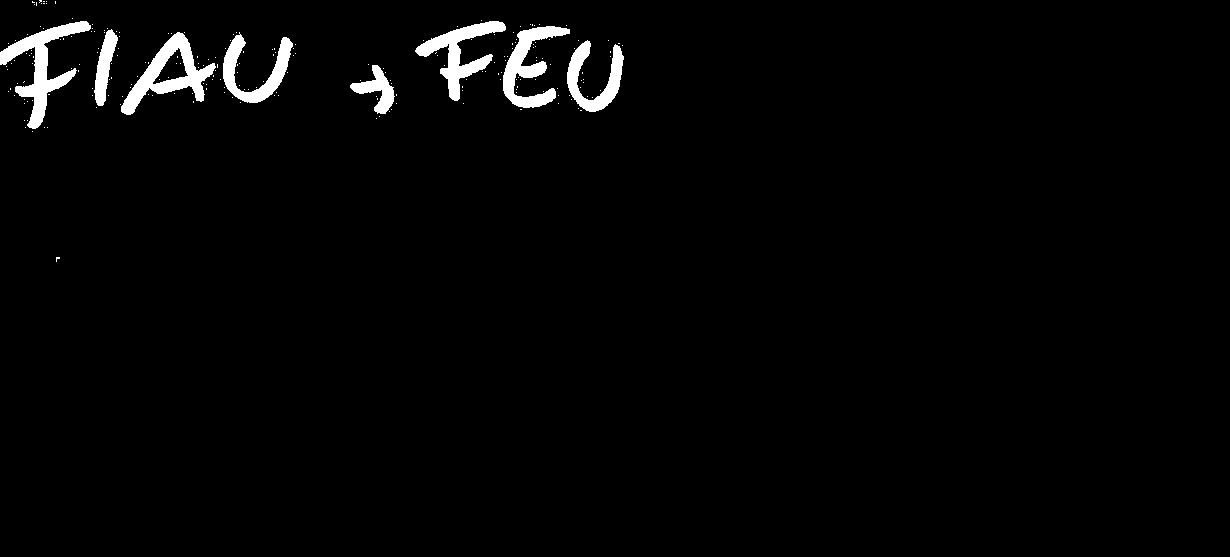 FIAU → FEU